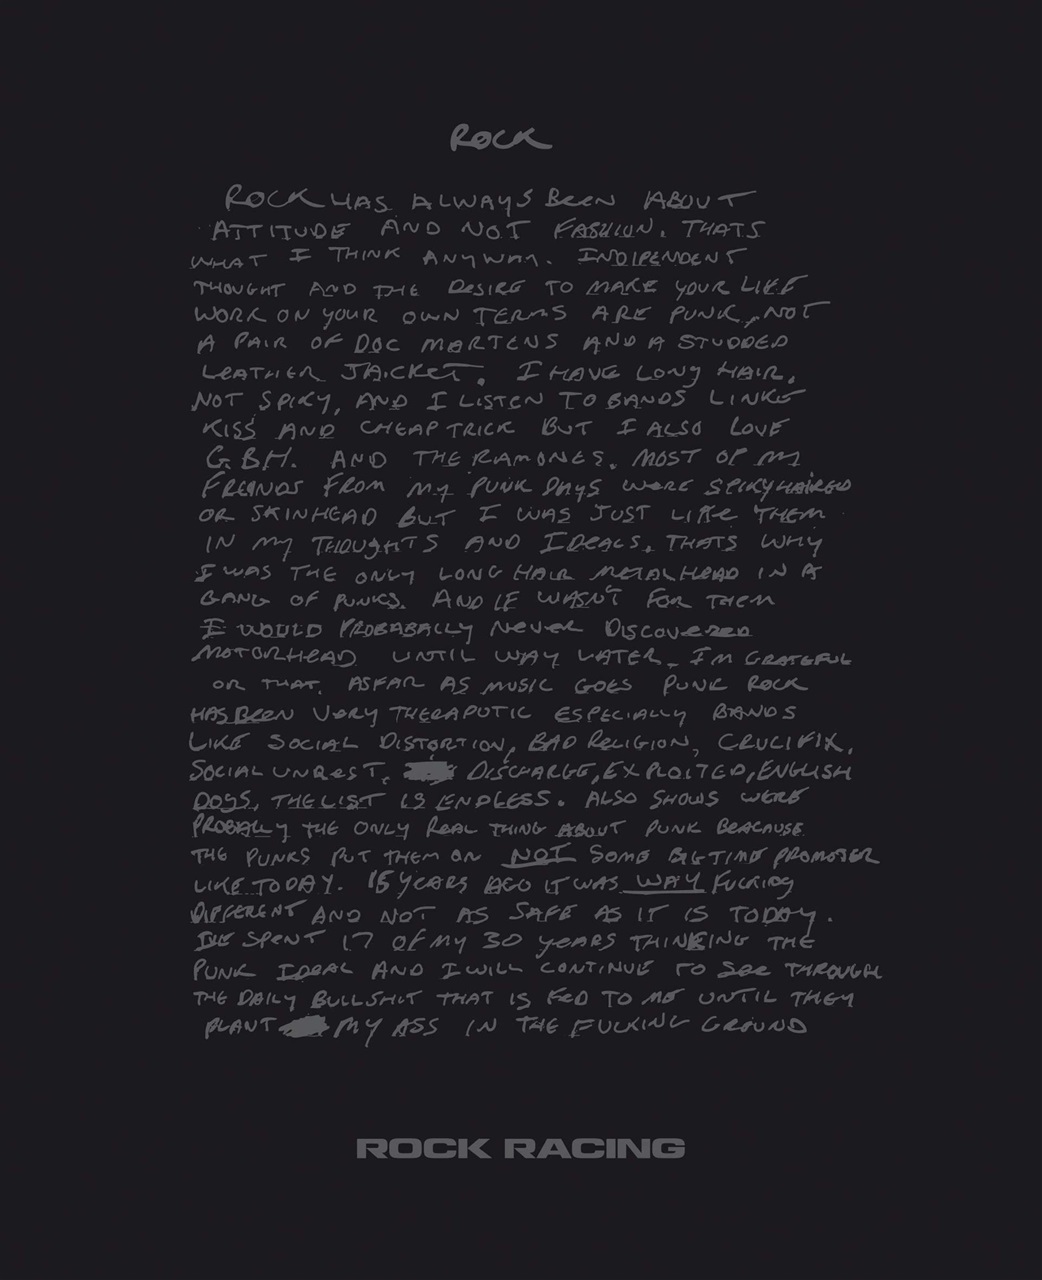 ROCK
ROCK HAS ALWAYS BEEN ABOUT
ATTITUDE AND NOT FASHION. THATS
WHAT I THINK ANYWAY. INDIPENDENT
THOUGHT AND THE DESIRE TO MAKE YOUR LIFE
WORK ON YOUR OWN TERMS ARE PUNK, NOT
A PAIR OF DOC MARTENS AND A STUDDED
LEATHER JACKET. I HAVE LONG HAIR,
NOT SPIKY, AND I LISTEN TO BANDS LINKE
KISS AND CHEAP TRICK BUT I ALSO LOVE
G.B.H. AND THE RAMONES. MOST OF MY
FREINDS FROM MY PUNK DAYS WERE SPIKY HAIRED
OR SKINHEAD BUT I WAS JUST LIKE THEM
IN MY THOUGHTS AND IDEALS. THATS WHY
I WAS THE ONLY LONG HAIR METALHEAD IN A
GANG OF PUNKS. AND IF WASN'T FOR THEM
I WOULD PROBABALLY NEVER DISCOVERED
MOTORHEAD UNTIL WAY LATER. I'M GRATEFUL
OR THAT. ASFAR AS MUSIC GOES PUNK ROCK
HAS BEEN VERY THERAPUTIC ESPECIALLY BANDS
LIKE SOCIAL DISTORTION, BAD RELIGION, CRUCIFIX,
SOCIAL UNREST, DISCHARGE, EXPLOITED, ENGLISH
DOGS, THE LIST IS ENDLESS. ALSO SHOWS WERE
PROBALLY THE ONLY REAL THING ABOUT PUNK BEACAUSE
THE PUNKS PUT THEM ON NOT SOME BIGTIME PROMOTER
LIKE TODAY. 15 YEARS AGO IT WAS WAY FUCKING
DIFFERENT AND NOT AS SAFE AS IT IS TODAY.
I'VE SPENT 17 OF MY 30 YEARS THINKING THE
PUNK IDEAL AND I WILL CONTINUE TO SEE THROUGH
THE DAILY BULLSHIT THAT IS FED TO ME UNTIL THEY
PLANT MY ASS IN THE FUCKING GROUND
ROCK RACING